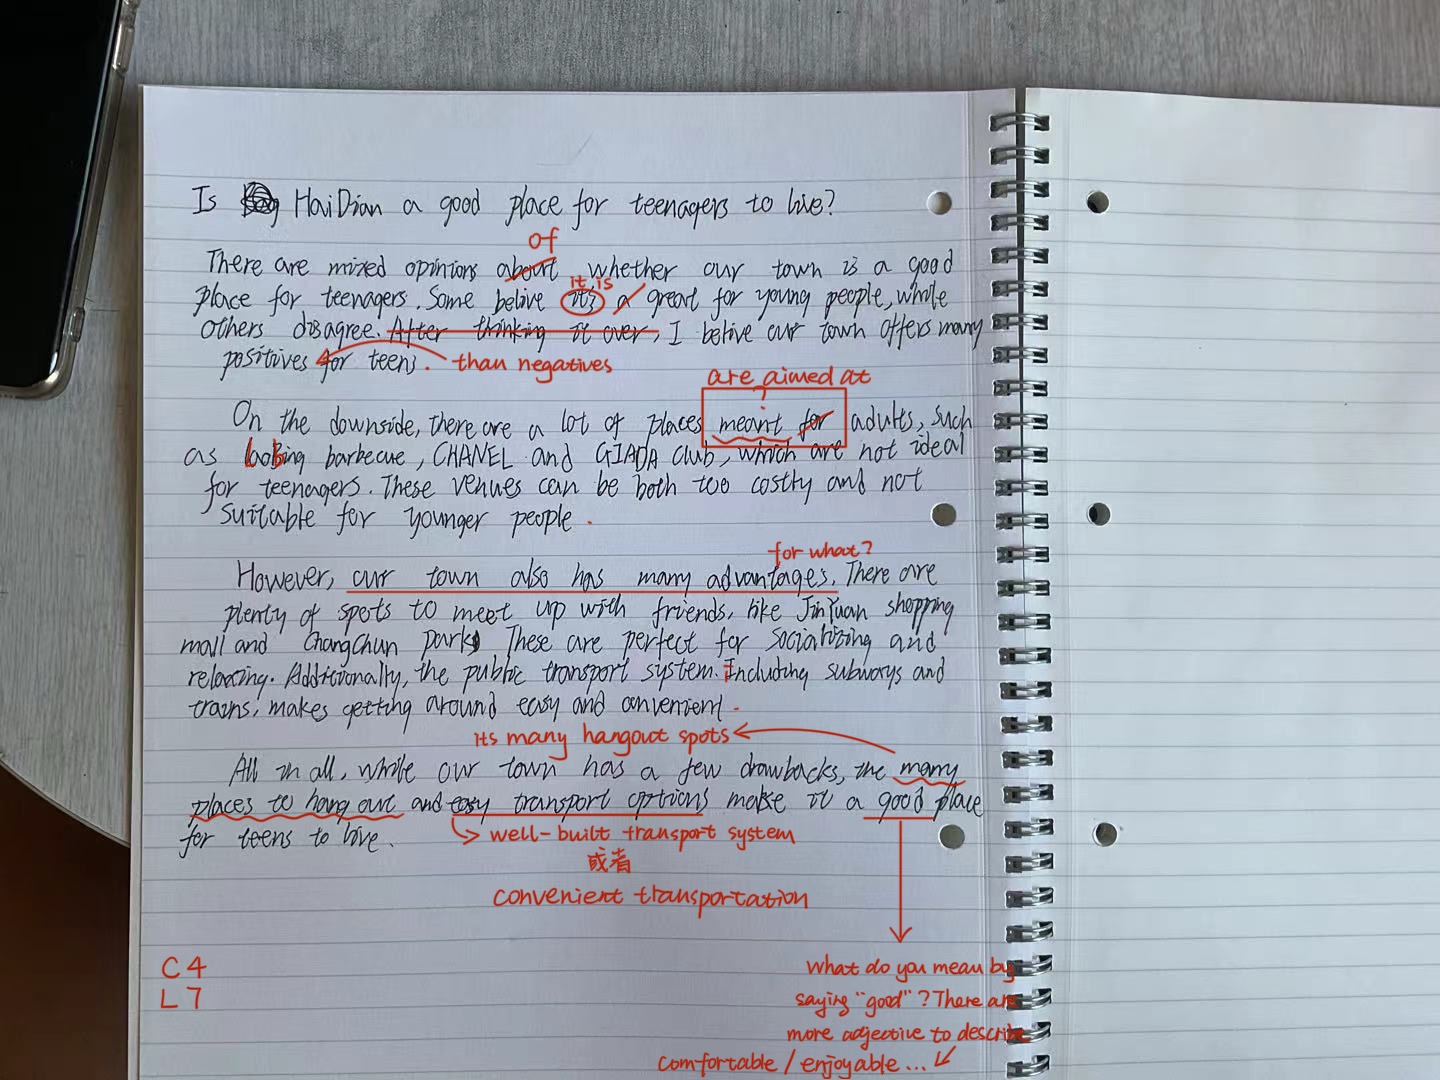 Is HaiDian a good place for teenagers to live?
of
There are mixed opinions about whether our town is a good
it is
place for teenagers. Some belive it's a great for young people, while
others disagree. After thinking it over, I belive our town offers many
positives for teens. than negatives
are aimed at
On the downside, there are a lot of places meant for adults, such
as barbecue, CHANEL and GIADA club, which are not ideal
for teenagers. These venues can be both too costly and not
suitable for younger people.
for what?
However, our town also has many advantages. There are
plenty of spots to meet up with friends, like JinYuan shopping
mall and ChangChun park. These are perfect for socializing and
relaxing. Additionally, the public transport system. Including subways and
trains, makes getting around easy and convenient.
its many hangout spots
All in all, while our town has a few drawbacks, the many
places to hang out and easy transport options make it a good place
for teens to live.
well-built transport system
或者
convenient transportation
C 4
L 7
What do you mean by
saying "good"? There are
more adjective to describe
comfortable / enjoyable ...